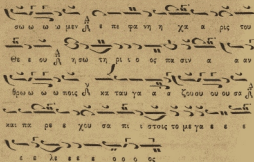 σω ω ω μεν ε πε φα νη η χα α ρις του
θε ε ου η σω τη ρι ι ο ς πα σιν α α αν
θρω ω ω ποις κα ταυ γα α ζου σου ου σα
και πα ρε ε χου σα πι ι στοις το με γα ε ε
ε ε λε ε ε ε ο ο ο ος